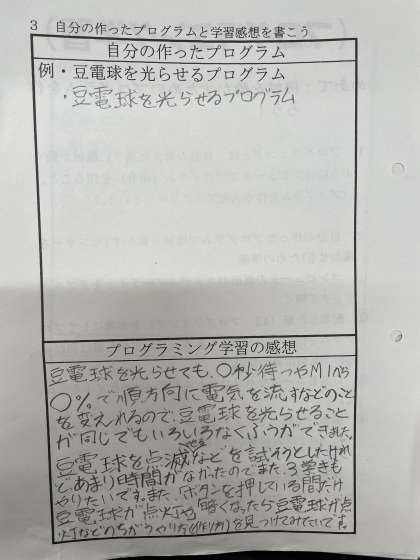 3 自分の作ったプログラムと学習感想を書こう
自分の作ったプログラム
例・豆電球を光らせるプログラム
・豆電球を光らせるプログラム
プログラミング学習の感想
豆電球を光らせても、〇秒待つやM1から
〇%で順方向に電気を流すなどのこと
を変えれるので、豆電球を光らせること
が同じでもいろいろなくふうができました。
豆電球を点滅させるなどを試そうとしたけれ
どあまり時間がなかったのでまた、3学きも
やりたいです。また、ボタンを押している間だけ
豆電球が点灯や暗くなったら豆電球が点
灯などのちがうやり方(作り方)を見つけてみたいで